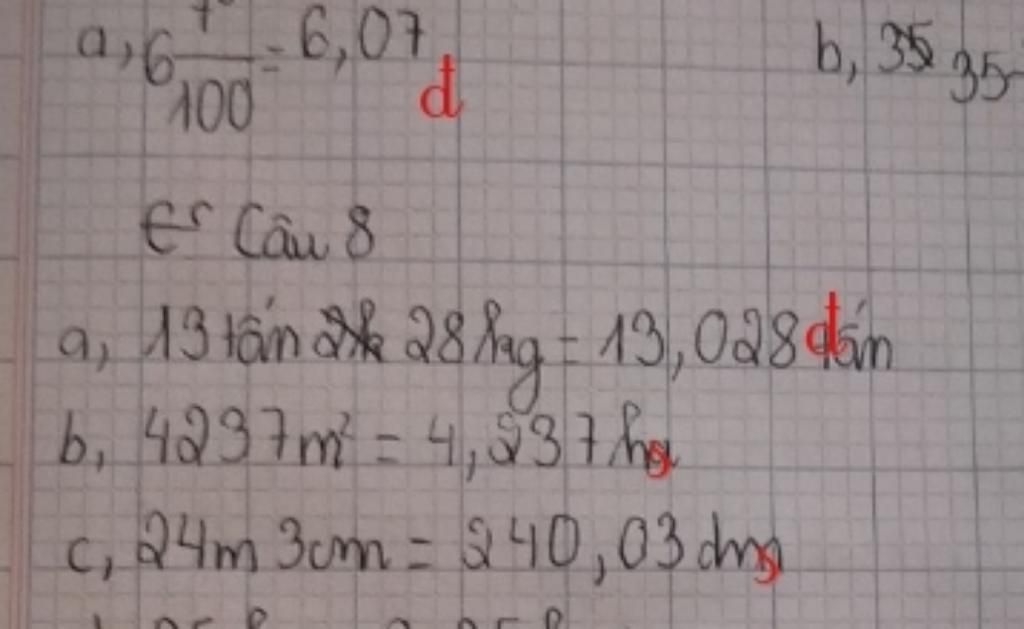 a, 6 7/100 = 6,07 đ
b, 35 35
Câu 8
a, 13 tấn 28 kg = 13,028 tấn đ
b, 4237m² = 4,237 ha s
c, 24m 3cm = 240,03 dm s